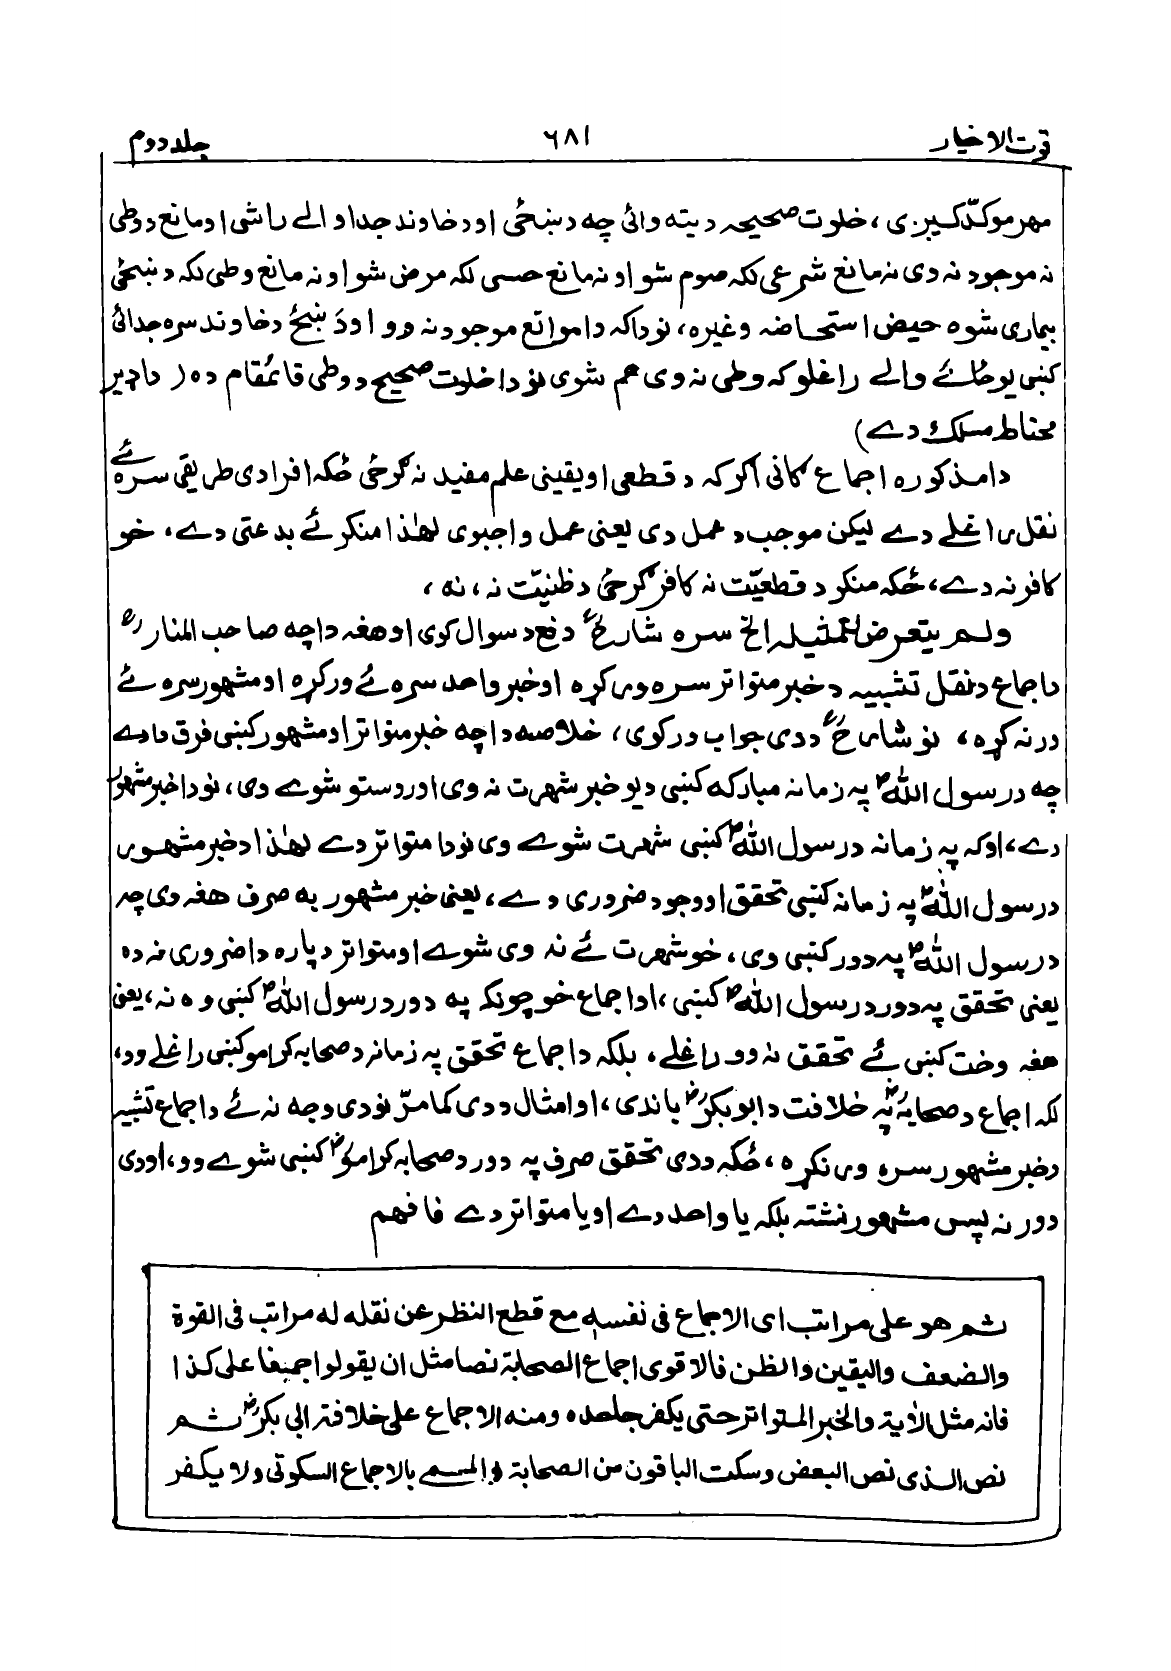 قوت الاخیار ٦٨١ جلد دوم
مهر موکد کیږی، خلوت صحیحہ دیته وائی چه د ښځی او د خاوند جدا والے راشی او مانع د وطی
نه موجود نه وی نه مانع شرعی لکه صوم شو او نه مانع حسی لکه مرض شو او نه مانع وطی لکه د ښځی
بیماری شوه حیض استحاضه وغیره، نو دا که دا موانع موجود نه وو او دَ ښځے د خاوند سره جدائی
کښی یو ځائے والے راغلو که وطی نه وی هم شوی نو دا خلوت صحیح د وطی قائمقام ده (دا ډیر
محتاط مسلک دے)
دا مذکوره اجماع کانی اگر که د قطعی او یقینی علم مفید نه گرځی ځکه افرادی طریقی سره ئے
نقل راغلے دے لیکن موجب د عمل دی یعنی عمل واجبوی لهٰذا منکر ئے بدعتی دے، خو
کافر نه دے، ځکه منکر د قطعیّت نه کافر گرځی د ظنیّت نه، نه،
ولم یتعرض لتمثیله الخ سره شارحؒ دفع د سوال کوی او هغه دا چه صاحب المنارؒ
د اجماع د نقل تشبیه د خبر متواتر سره ورکړه او خبر واحد سره ئے ورکړه او مشهور سره ئے
ور نه کړه، نو شارحؒ ددی جواب ورکوی، خلاصه دا چه خبر متواتر او مشهور کښی فرق دا دے
چه د رسول اللهؐ په زمانه مبارکه کښی د یو خبر شهرت نه وی او روستو شوے وی، نو دا خبر مشهور
دے، او که په زمانه د رسول اللهؐ کښی شهرت شوے وی نو دا متواتر دے لهٰذا د خبر مشهور
د رسول اللهؐ په زمانه کښی تحقق او وجود ضروری دے، یعنی خبر مشهور به صرف هغه وی چه
د رسول اللهؐ په دور کښی وی، خو شهرت ئے نه وی شوے او متواتر د پاره دا ضروری نه ده
یعنی تحقق په دور د رسول اللهؐ کښی، او اجماع خو چونکه په دور د رسول اللهؐ کښی وه نه، یعنی
هغه وخت کښی ئے تحقق نه وو راغلے، بلکه د اجماع تحقق په زمانه د صحابه کرامو کښی راغلے وو،
لکه اجماع د صحابهؓ په خلافت د ابو بکرؓ باندی، او امثال ددی کما مرّ نو دی وجه نه ئے د اجماع تشبیه
د خبر مشهور سره ور نکړه، ځکه ددی تحقق صرف په دور د صحابه کرامؓ کښی شوے وو، او دی
دور نه پس مشهور نشته بلکه یا واحد دے او یا متواتر دے فافهم
ثم هو علی مراتب ای الاجماع فی نفسه مع قطع النظر عن نقله له مراتب فی القوة
والضعف والیقین والظن فالاقوی اجماع الصحابة نصا مثل ان یقولوا جمیعا علی کذا
فانه مثل الاٰیة والخبر المتواتر حتی یکفر جاحده ومنه الاجماع علی خلافة ابی بکرؓ ثم
نص الذی نص البعض وسکت الباقون من الصحابة والمسمی بالاجماع السکوتی ولا یکفر